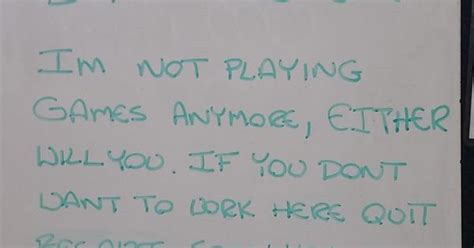 I'M NOT PLAYING
GAMES ANYMORE, EITHER
WILL YOU. IF YOU DONT
WANT TO WORK HERE QUIT